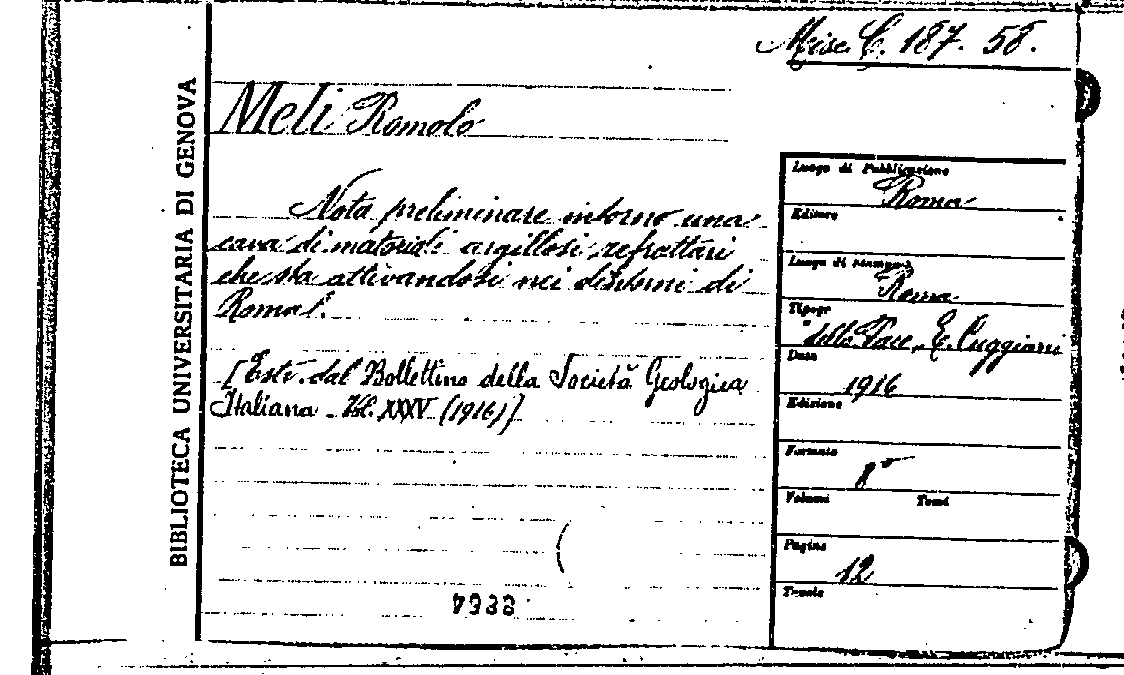 Misc. C. 187. 58.
BIBLIOTECA UNIVERSITARIA DI GENOVA
Meli Romolo
Nota preliminare intorno una
cava di materiali argillosi refrattari
che sta attivandosi nei dintorni di
Roma.
[Estr. dal Bollettino della Società Geologica
Italiana - Vol. XXXV (1916)]
Luogo di Pubblicazione
Roma
Editore
Luogo di stampa
Roma
Tipogr
della Pace, E. Cuggiani
Data
1916
Edizione
Formato
8°
Volumi Tomi
Pagine
12
Tavole